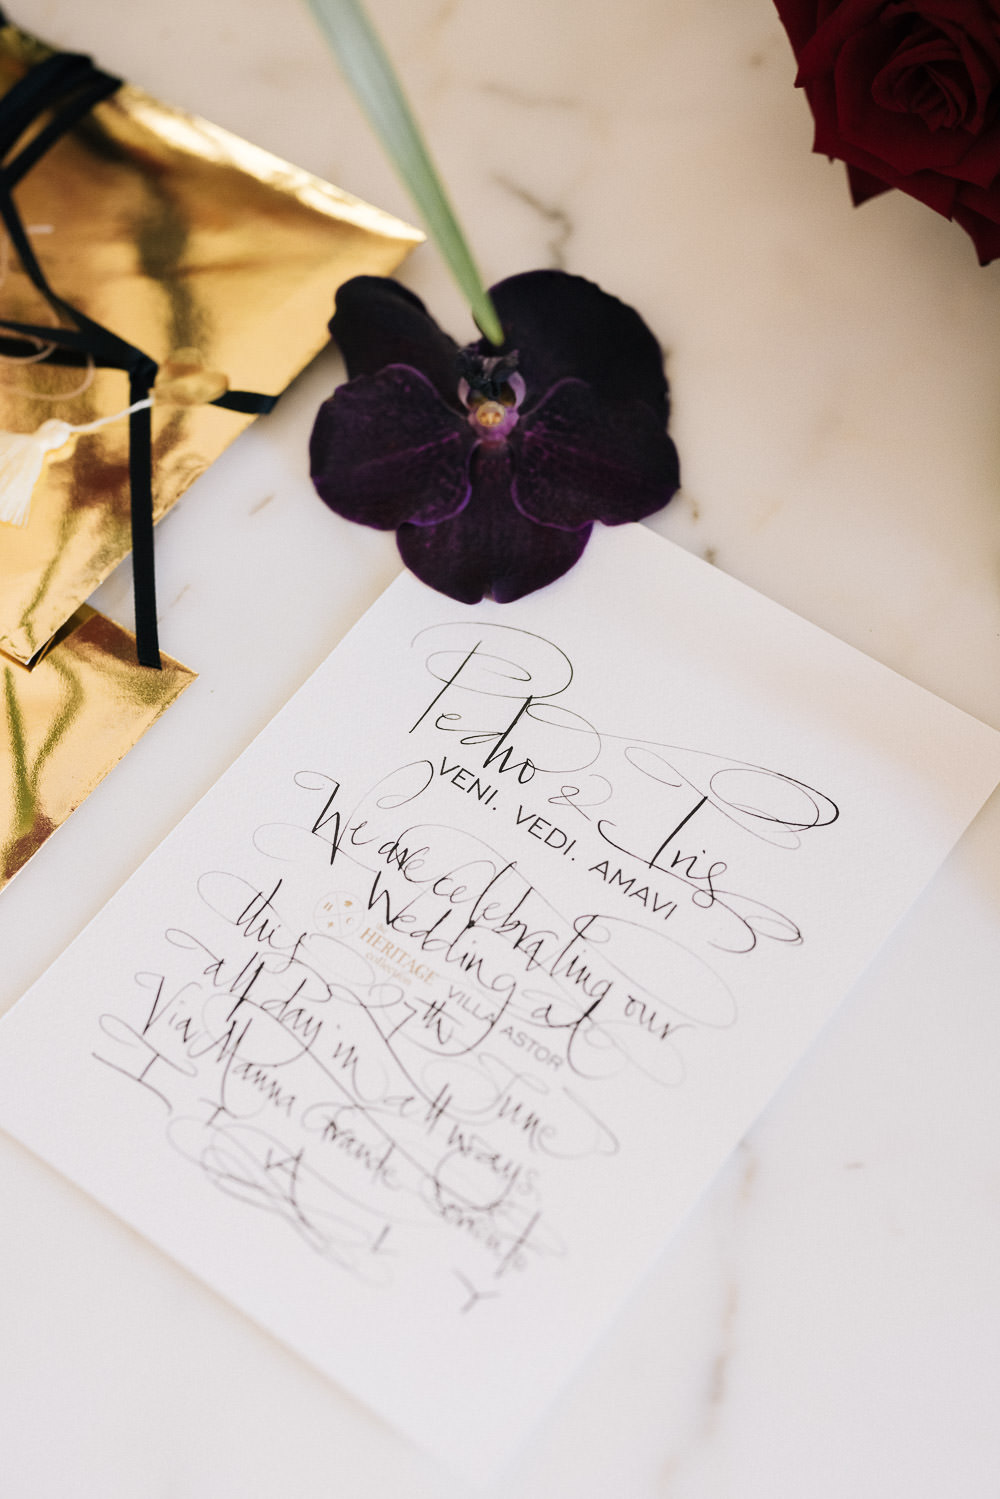 Pedro & Iris
VENI. VEDI. AMAVI
We are celebrating our
Wedding at
H C
the
HERITAGE
collection
VILLA ASTOR
this 27th June
all day in all ways.
Via Marina Grande Sorrento
I T A L Y